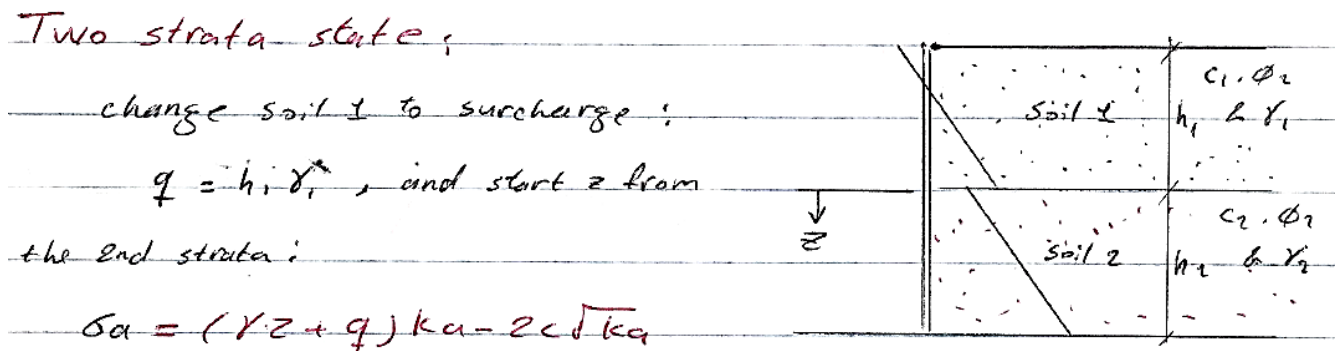 Two strata state :
change soil 1 to surcharge :
q = h₁ γ₁ , and start z from
the 2nd strata :
σa = (γ.z + q) ka - 2c√ka
c₁ . φ₂
soil 1
h₁ & γ₁
z
c₂ . φ₂
soil 2
h₂ & γ₂